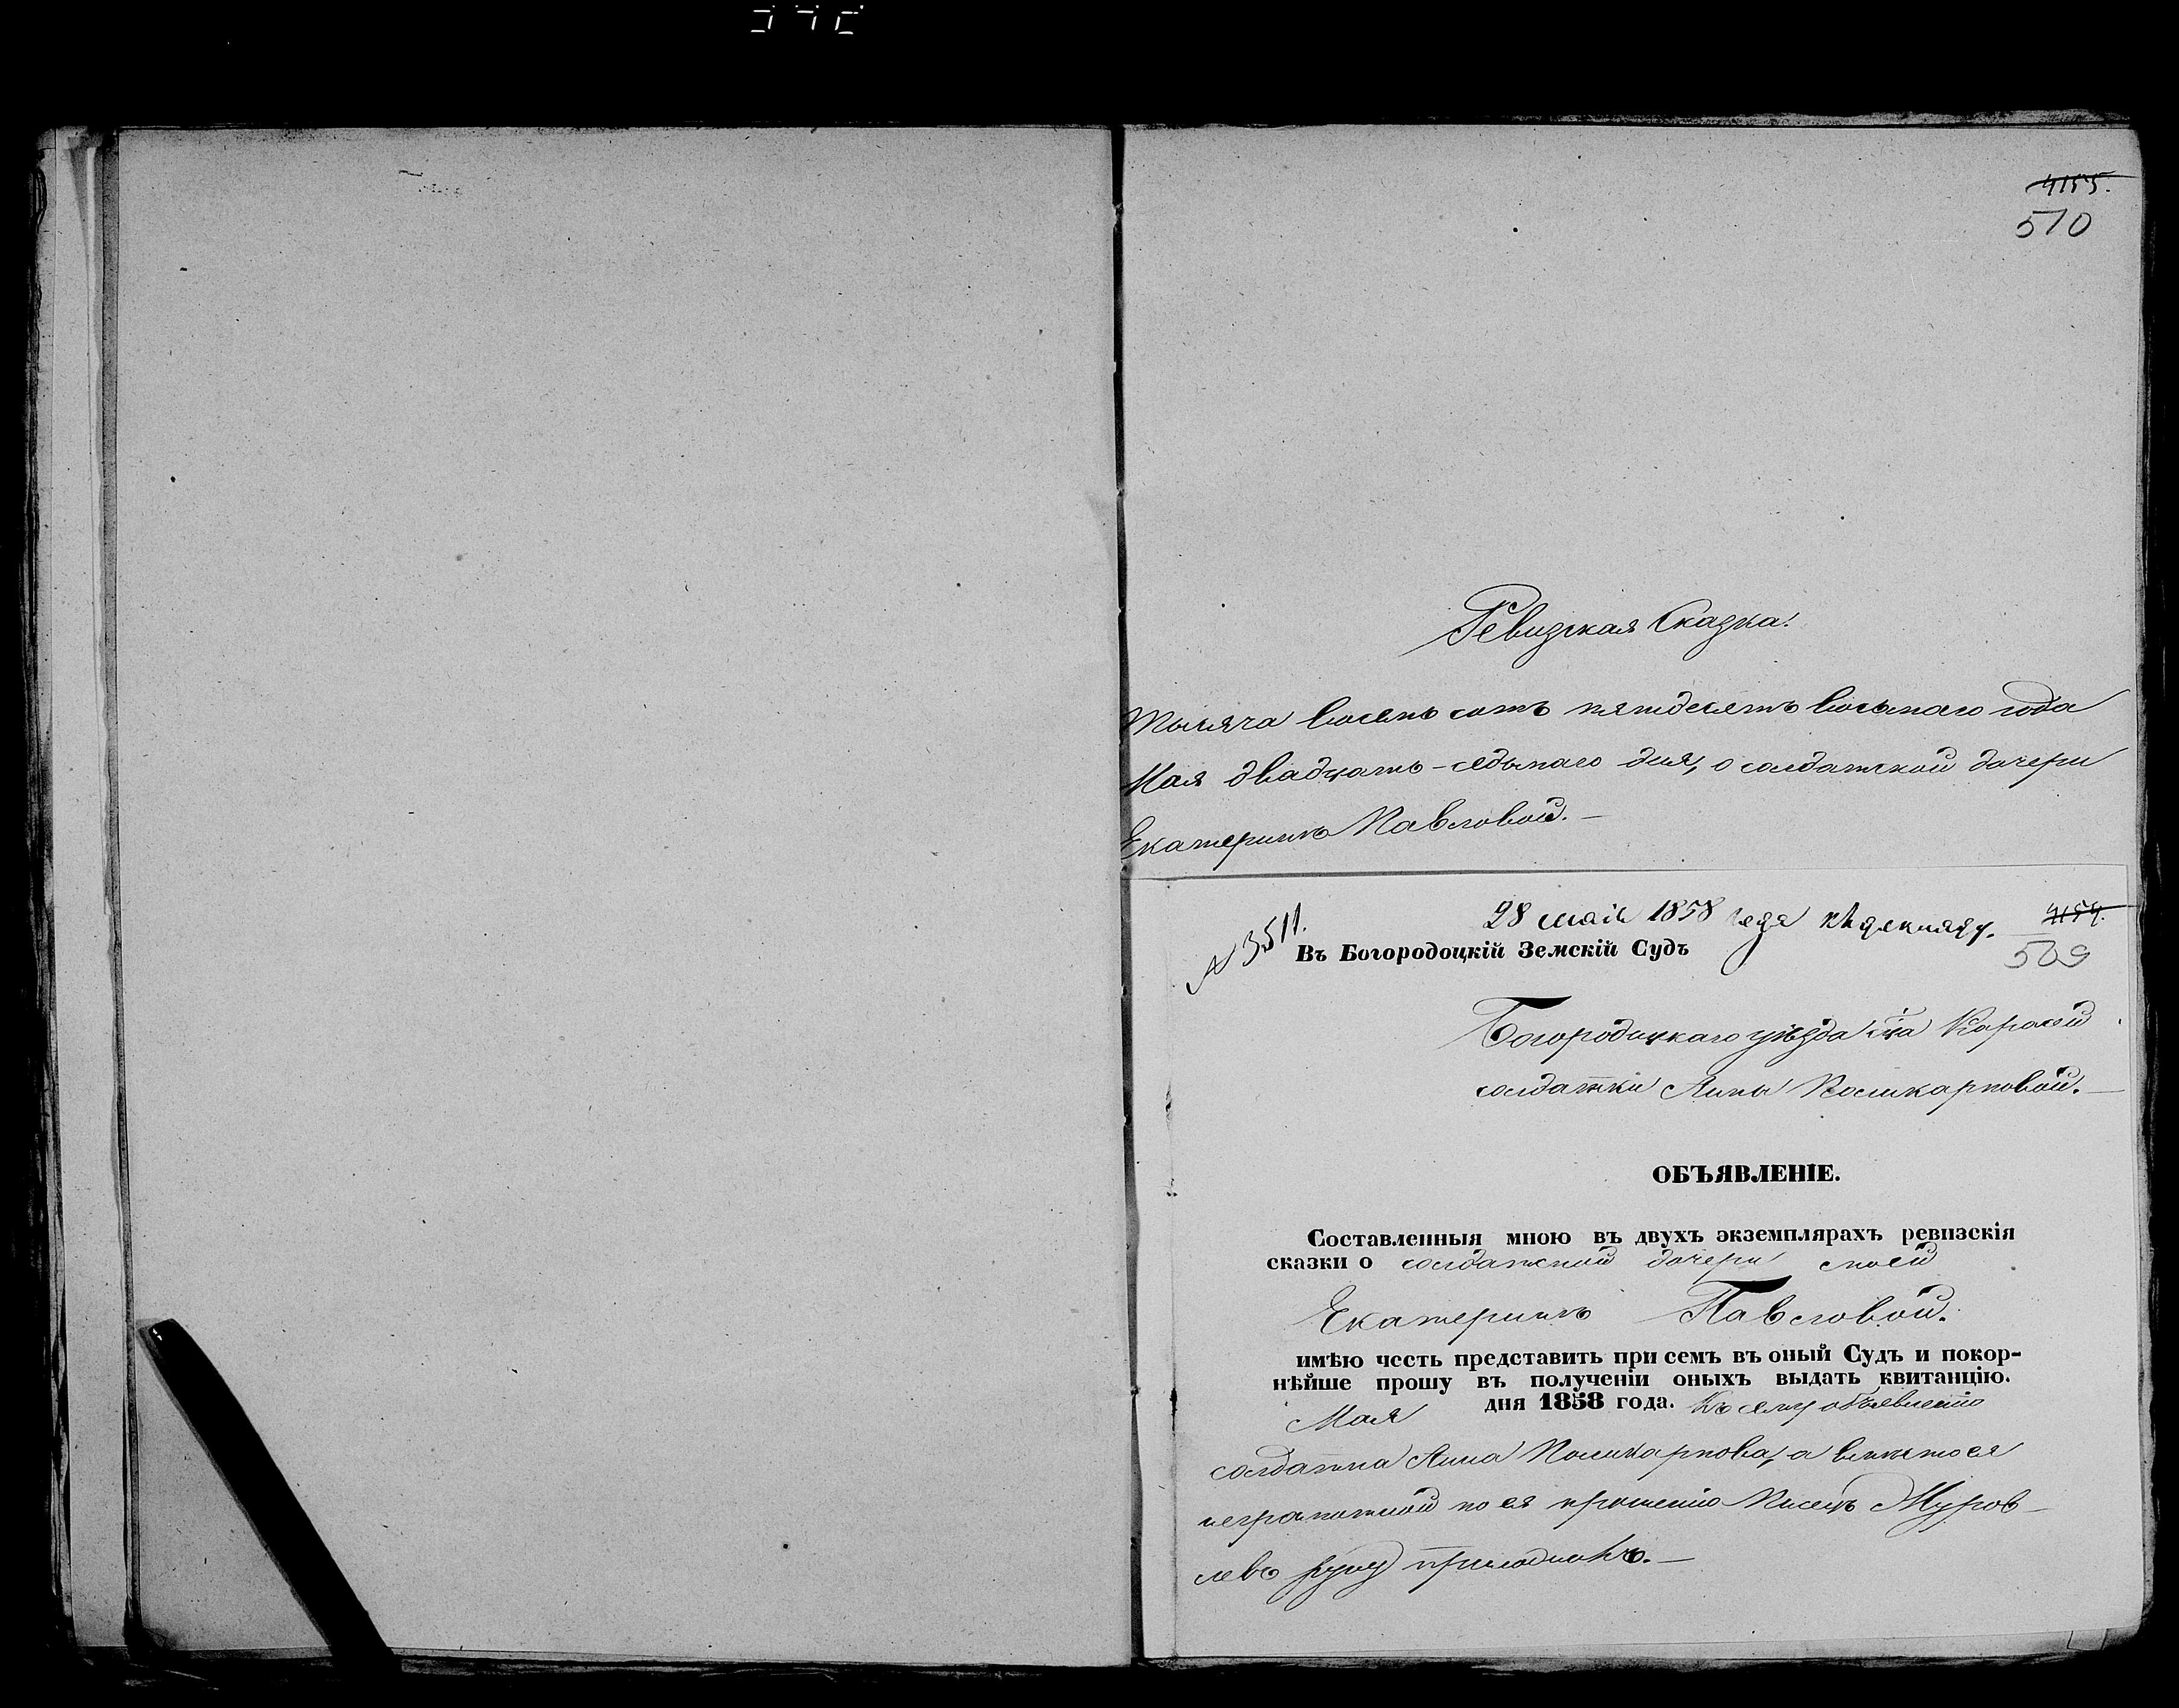 4155.
510
Ревизская Сказка.
Тысяча восемь сотъ пятдесятъ восьмаго года
Мая двадцать-седьмаго дня, о солдатской дочери
Екатеринѣ Павловой.-
№ 3511.
28 маія 1858 года
4154.
509
Въ Богородоцкій Земскій Судъ
Богородицкаго уѣзда с̃ла
солдатки Анны Поликарповой.-
ОБЪЯВЛЕНІЕ.
Составленныя мною въ двухъ экземплярахъ ревизскія
сказки о солдатской дочери моей
Екатеринѣ Павловой.
имѣю честь представить при семъ въ оный Судъ и покор-
нѣйше прошу въ полученіи оныхъ выдать квитанцію.
Мая дня 1858 года. Къ сему объявленію
солдатка Анна Поликарпова, а вмѣсто ея
неграмотной по ея прошенію Писецъ Муров-
левъ руку приложилъ.-